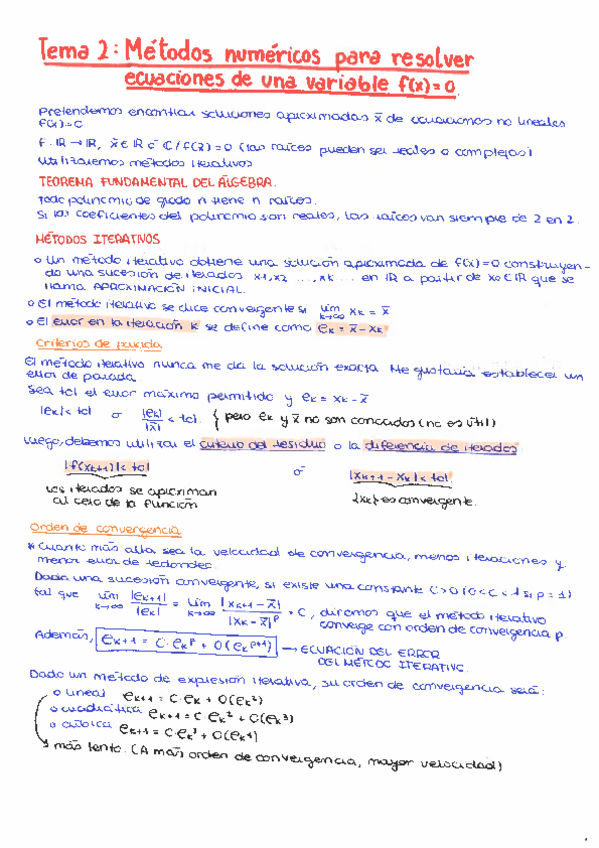 Tema 2: Métodos numéricos para resolver
ecuaciones de una variable f(x)=0.
Pretendemos encontrar soluciones aproximadas x̄ de ecuaciones no lineales
f(x)=0
f: IR → IR, x̄ ∈ IR ó ℂ / f(x̄) = 0 (las raíces pueden ser reales o complejas)
Utilizaremos métodos iterativos
TEOREMA FUNDAMENTAL DEL ÁLGEBRA.
Todo polinomio de grado n tiene n raíces.
Si los coeficientes del polinomio son reales, las raíces van siempre de 2 en 2.
MÉTODOS ITERATIVOS
o Un método iterativo obtiene una solución aproximada de f(x)=0 construyen-
do una sucesión de iterados x1, x2 ..., xk ... en IR a partir de x0 ∈ IR que se
llama APROXIMACIÓN INICIAL.
o El método iterativo se dice convergente si lim k→∞ xk = x̄
o El error en la iteración k se define como ek = x̄ - xk
Criterios de parada
El método iterativo nunca me da la solución exacta. Me gustaría establecer un
error de parada.
Sea tol el error máximo permitido y ek = xk - x̄
|ek| < tol o |ek|/|x̄| < tol. { pero ek y x̄ no son conocidos (no es útil)
Luego, debemos utilizar el criterio del residuo o la diferencia de iterados.
|f(xk+1)| < tol ó |xk+1 - xk| < tol.
Los iterados se aproximan
al cero de la función
{xk} es convergente.
Orden de convergencia
* Cuanto más alta sea la velocidad de convergencia, menos iteraciones y
menor error de redondeo.
Dada una sucesión convergente, si existe una constante C>0 (0<C<1 si p=1)
tal que lim k→∞ |ek+1|/|ek| = lim k→∞ |xk+1 - x̄|/|xk - x̄|^p = C, diremos que el método iterativo
converge con orden de convergencia p.
Además, ek+1 = C·ek^p + O(ek^p+1) → ECUACIÓN DEL ERROR
DEL MÉTODO ITERATIVO.
Dado un método de expresión iterativa, su orden de convergencia será:
o lineal ek+1 = C·ek + O(ek²)
o cuadrática ek+1 = C·ek² + O(ek³)
o cúbica ek+1 = C·ek³ + O(ek⁴)
más lento. (A más orden de convergencia, mayor velocidad)